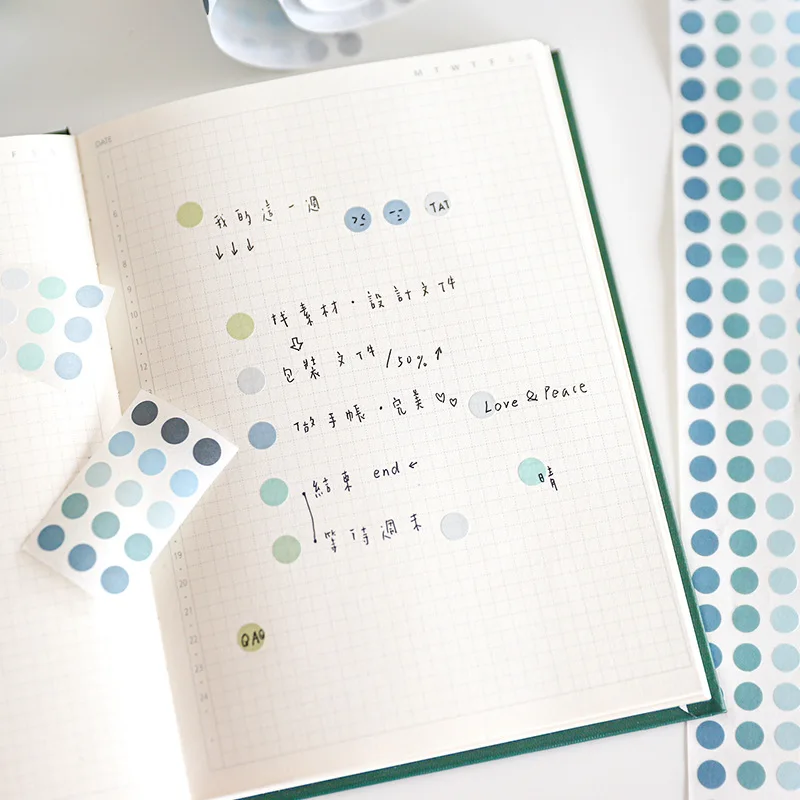 F
DATE
M T W T F S S
我的這一週 TAT
↓↓↓
找素材・設計文件
⇩
包裝文件/50%↑
做手帳・完美♡♡ Love & Peace
結束 end ←
晴
等待週末
QAQ
6
7
8
9
10
11
12
19
20
21
22
23
24